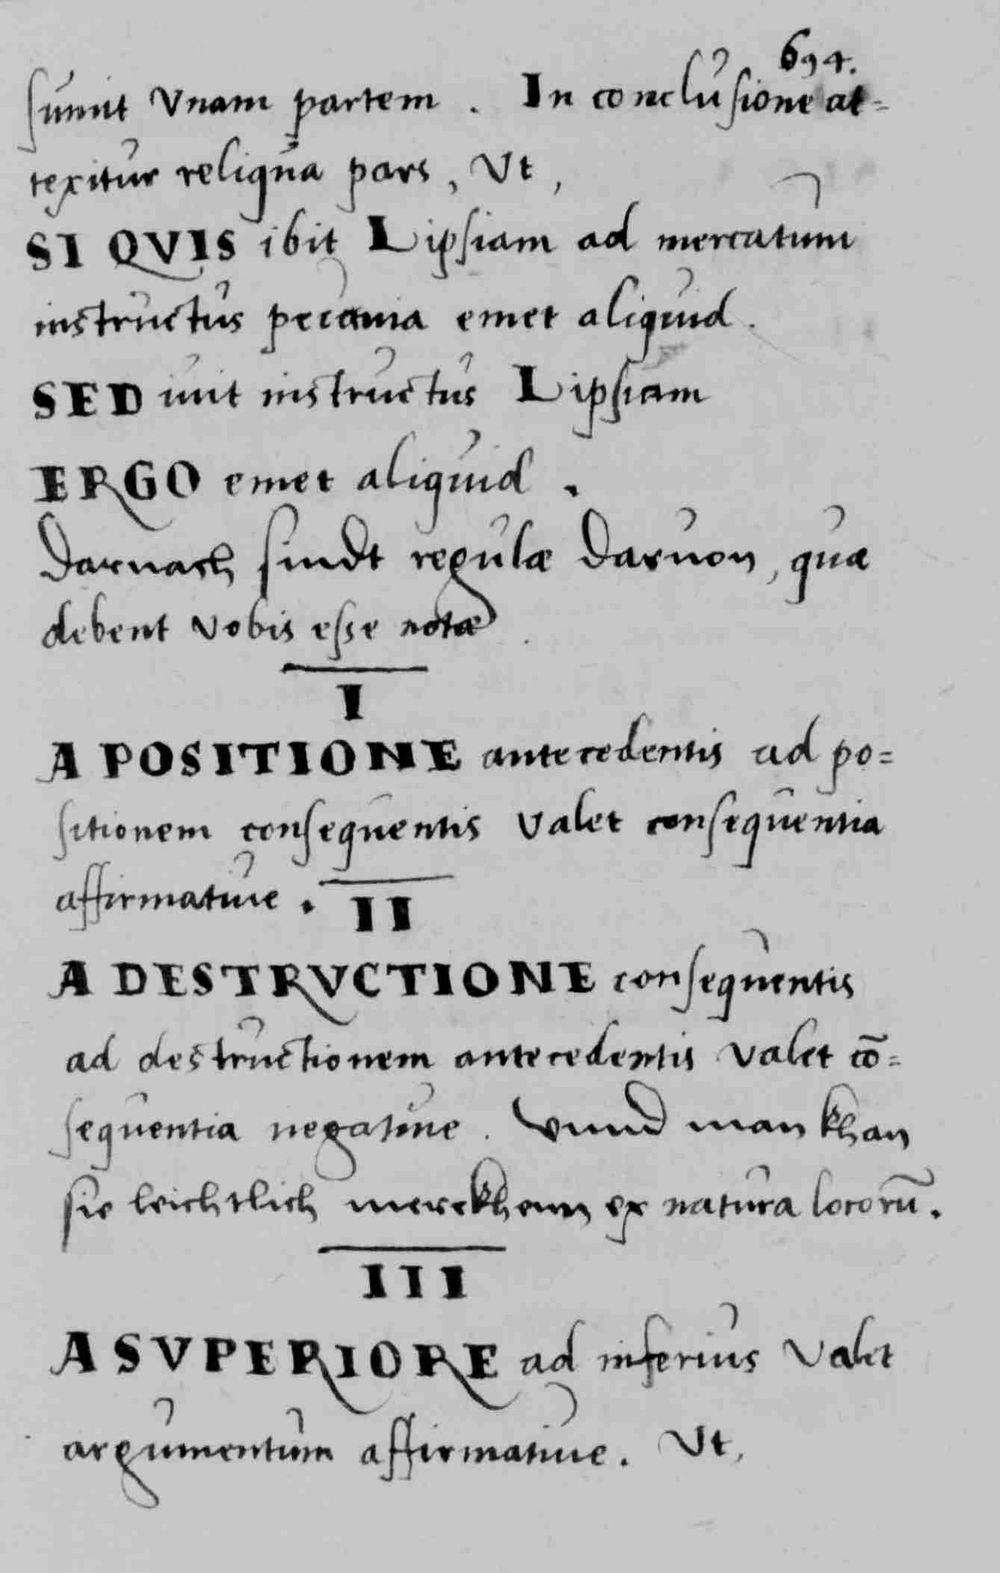 694.
sumit Vnam partem. In conclusione at=
texitur reliqua pars, Vt,
SI QVIS ibit Lipsiam ad mercatum
instructus pecunia emet aliquid.
SED iuit instructus Lipsiam
ERGO emet aliquid.
Darnach sindt regulæ daruon, quæ
debent vobis esse notæ
I
A POSITIONE antecedentis ad po=
sitionem consequentis valet consequentia
affirmatiue.
II
A DESTRVCTIONE consequentis
ad destructionem antecedentis valet cō=
sequentia negatiue. Vnnd man khan
sie leichtlich merckhenn ex natura locorū.
III
A SVPERIORE ad inferius valet
argumentum affirmatiue. Vt,